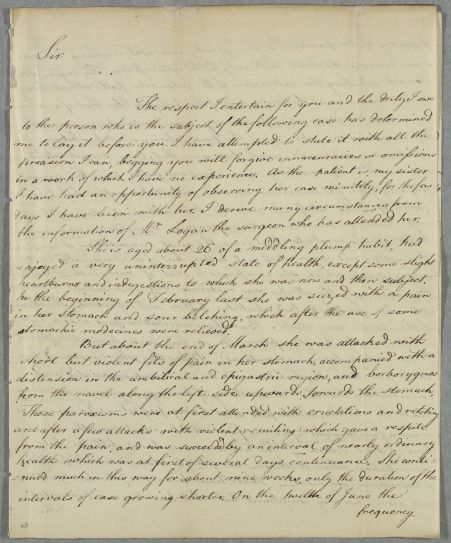 Sir
The respect I entertain for you and the duty I owe
to the person who is the subject of the following case has determined
me to lay it before you. I have attempted to state it with all the
precision I can, begging you will forgive innaccuracies or omissions
in a work of which I have no experience. As the patient is my sister
I have had an opportunity of observing her case minutely, for the few
days I have been with her, I derive many circumstances from
the information of Mr Logan the surgeon who has attended her.
She is aged about 26 of a meddling plump habit, had
injoyed a very uninterrupted state of health, except some slight
heartburns and indigestions to which she was now and then subject.
In the beginning of February last she was siezed with a pain
in her stomach and sour belching, which after the use of some
stomachic medecines were relieved.
But about the end of March she was attacked with
short but violent fits of pain in her stomach, accompanied with a
distension in the umbilical and epigastric region, and borborygmos
from the navel along the left side upwards towards the stomach.
These paroxisms were at first attended with eructations and retching
and after a few attacks with violent vomiting which gave a respite
from the pain, and was succeeded by an interval of nearly ordinary
health which was at first of several days continuance. She conti-
nued much in this way for about nine weeks only the duration of the
intervals of ease growing shorter. On the twelth of June the
frequency